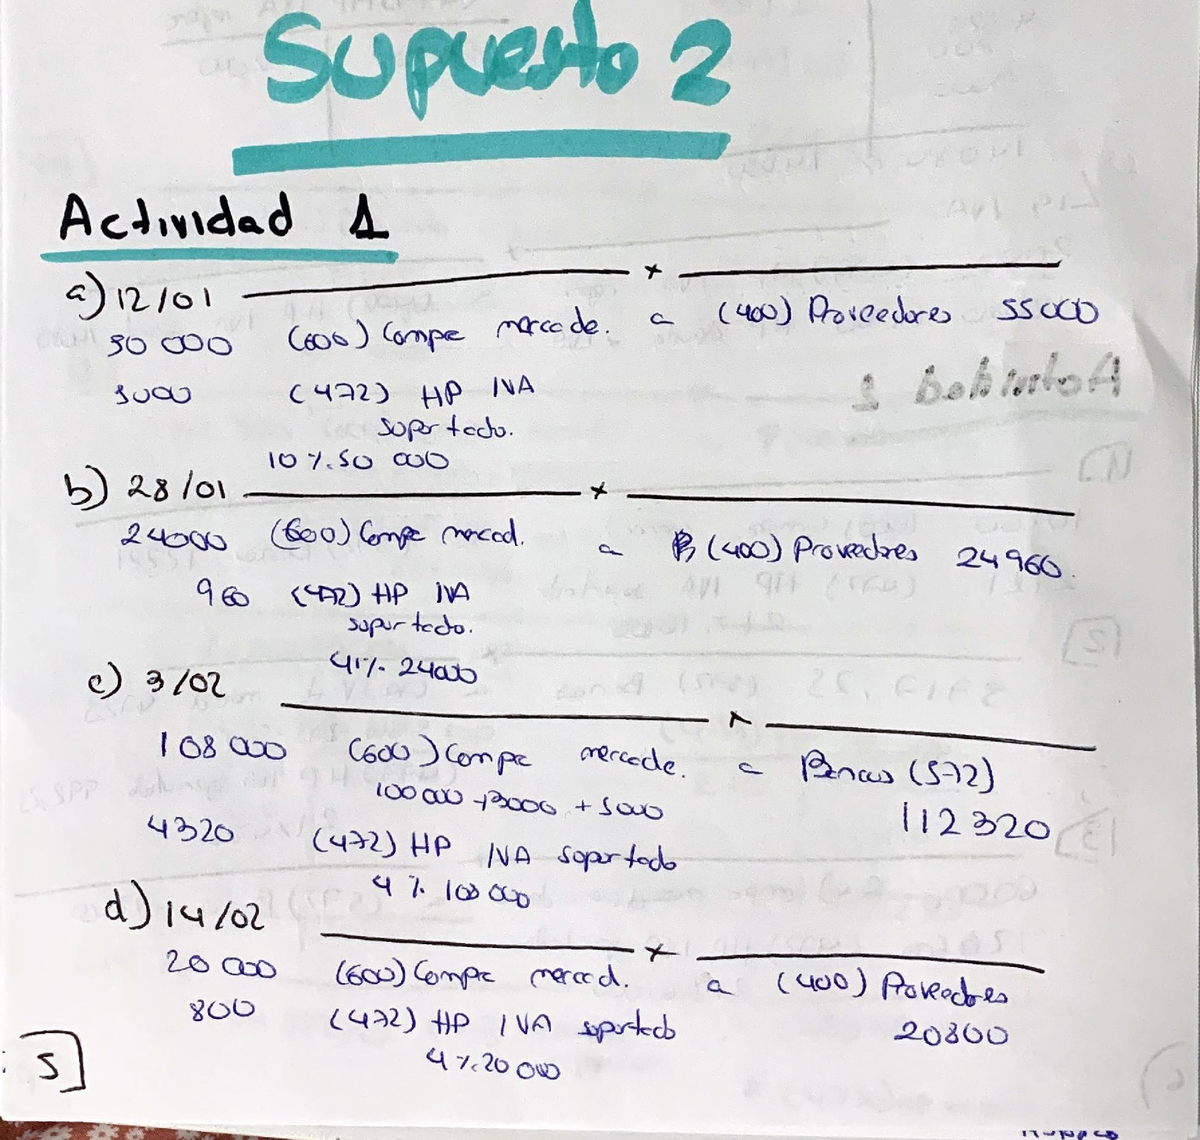 Supuesto 2
Actividad 1
a) 12/01 x
50 000 (600) Compra mercade. a (400) Proveedores 55000
5000 (472) HP IVA
soportado.
10 %. 50 000
b) 28/01 x
24000 (600) Compra mercad. a (400) Proveedores 24960.
960 (472) HP IVA
soportado.
4%. 24000
c) 3/02 x
108 000 (600) Compra mercade. a Bancos (572)
100 000 + 3000 + 5000 112320
4320 (472) HP IVA soportado
4 %. 108 000
d) 14/02 x
20 000 (600) Compra mercad. a (400) Proveedores
800 (472) HP IVA soportado 20800
4 %. 20 000
5